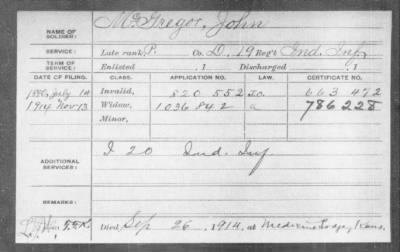 McGregor, John
NAME OF SOLDIER:
SERVICE: Late rank, P. Co. D, 19 Reg't Ind. Inf.
TERM OF SERVICE: Enlisted , 1 Discharged , 1
DATE OF FILING. CLASS. APPLICATION NO. LAW. CERTIFICATE NO.
July 14 Invalid, 820 552 663 472
1914 Nov 13 Widow, 1036 842 a 786 228
Minor,
ADDITIONAL SERVICES: I 20 Ind. Inf.
REMARKS:
Died Sep 26, 1914, at Medicine Lodge, Kans.